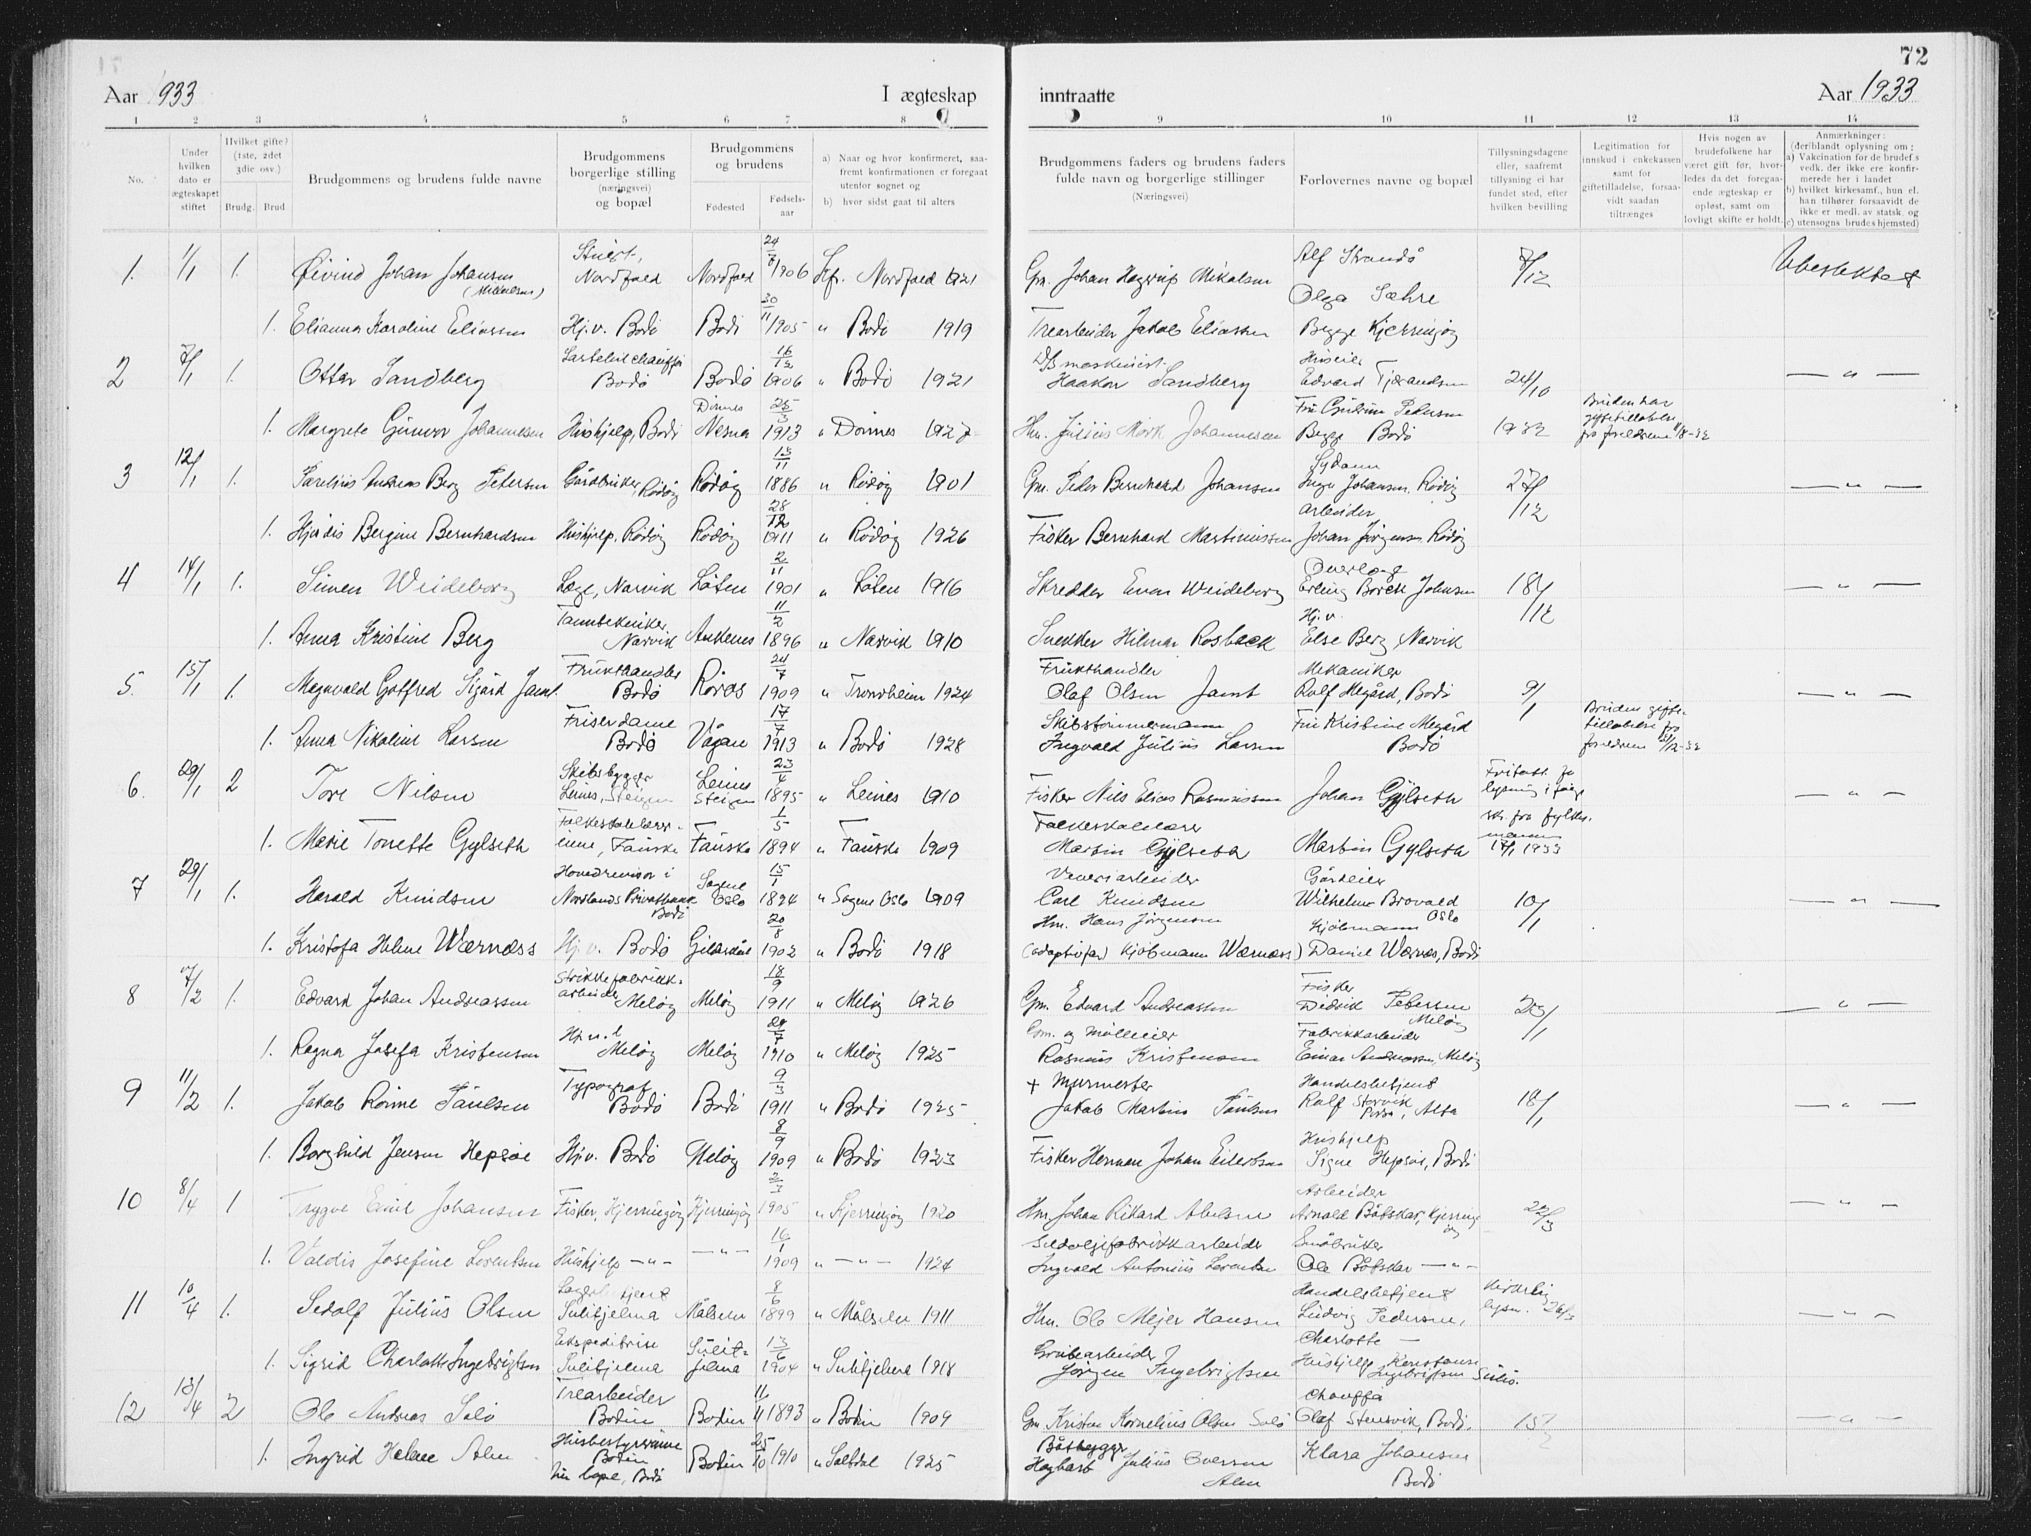 72
Aar 1933 I ægteskap inntraatte Aar 1933
1 2 3 4 5 6 7 8 9 10 11 12 13 14
No.
Under hvilken dato er ægteskapet stiftet
Hvilket gifte? (1ste, 2det 3die osv.)
Brudg. Brud.
Brudgommens og brudens fulde navne
Brudgommens borgerlige stilling (næringsvei) og bopæl
Brudgommens og brudens
Fødested Fødsels-aar
a) Naar og hvor konfirmeret, saa-fremt konfirmationen er foregaat utenfor sognet og
b) hvor sidst gaat til alters
Brudgommens faders og brudens faders fulde navn og borgerlige stillinger (Næringsvei)
Forlovernes navne og bopæl
Tillysningsdagene eller, saafremt tillysning ei har fundet sted, efter hvilken bevilling
Legitimation for innskud i enkekassen samt for giftetilladelse, forsaa-vidt saadan tiltrænges
Hvis nogen av brudefolkene har været gift før, hvor-ledes da det foregaa-ende ægteskap er opløst, samt om lovligt skifte er holdt.
Anmærkninger: (deriblandt oplysning om;
a) Vakcination for de brudef.s vedk. der ikke ere konfir-merede her i landet
b) hvilket kirkesamf., hun el. han tilhører forsaavidt de ikke er medl. av statsk. og
c) utensogns brudes hjemsted)
1. 1/1 1. Øivind Johan Johansen (Mikalsen) Nordfold Nordfold 1906 Kfr. Nordfold 1921 Gm. Johan Hagerup Mikalsen Alf Strandå 7/12 Ubeslektet
1. Elianna Karoline Eliassen Hj.v. Bodø Bodø 30/11 1905 " Bodø 1919 Trearbeider Jakob Eliassen Olga Sæhre Begge Kjerringøy
2 7/1 1. Ottar Sandberg Lastebilchauffør Bodø Bodø 16/12 1906 " Bodø 1921 D/S maskinist Haakon Sandberg Huseier Edvard Tjærandsen 24/10 — " —
1. Margrete Gunvor Johannesen Hushjelp, Bodø Dønnes Nesna 25/3 1913 " Dønnes 1927 Hm. Julius Mork Johannesen Fru Gudrun Pedersen Begge Bodø 1932 Bruden har giftetillatelse fra foreldrene
3 12/1 1. Sarelius Andreas Berg Petersen Gårdbruker, Rødøy Rødøy 13/11 1886 " Rødøy 1901 Gm. Peder Bernhard Johansen Sydame Inga Johansen, Rødøy 27/12 — " —
1. Hjørdis Bergine Bernhardsen Hushjelp, Rødøy Rødøy 28/12 1911 " Rødøy 1926 Fisker Bernhard Martinussen arbeider Johan Jørgensen, Rødøy
4 14/1 1. Simen Weideborg Læge, Narvik Løten 2/11 1901 " Løten 1916 Skredder Even Weideborg Overlæge Erling Borch Johnsen 18/12 — " —
1. Anna Kristine Berg Tanntekniker, Narvik Ankenes 11/2 1896 " Narvik 1910 Snekker Hilmar Rosback Hj.v. Else Berg, Narvik
5. 15/1 1. Magnvald Gotfred Sigurd Jamt Frukthandler Bodø Røros 24/7 1909 " Trondheim 1924 Frukthandler Olaf Olsen Jamt Mekaniker Rolf Megård, Bodø 9/1 — " —
1. Anna Nikoline Larsen Friserdame Bodø Vågan 17/7 1913 " Bodø 1928 Skibstømmermann Ingvald Julius Larsen Fru Kristine Megård Bodø Brudens gifte-tillatelse fra foreldrene
6. 29/1 2 Tore Nilsen Skibsbygger Leines, Steigen Leines Steigen 23/4 1895 " Leines 1910 Fisker Nils Elias Rasmussen Johan Gylseth Fritatt for lysning i følge skr. fra fylkes-mannen 17/1 1933 — " —
1. Marie Tonette Gylseth Folkeskolelærer-inne, Fauske Fauske 1/5 1894 " Fauske 1909 Folkeskolelærer Martin Gylseth Martin Gylseth
7 29/1 1. Harald Knudsen Hovedrevisor i Nordlands Privatbank Bodø Sagene Oslo 15/1 1894 " Sagene Oslo 1909 Veveriarbeider Carl Knudsen Gårdeier Wilhelm Brovold Oslo 10/1 — " —
1. Kristofa Helene Wærnæss Hj.v. Bodø Gildeskål 20/8 1902 " Bodø 1918 Hm. Hans Jørgensen (adoptivfar) Kjøbmann Wærnæss) Kjøbmann Daniel Wærnæs, Bodø
8 7/2 1. Edvard Johan Andreassen Strikkefabrikk-arbeider Meløy Meløy 18/9 1911 " Meløy 1926 Gm. Edvard Andreassen Fisker Didrik Pedersen Meløy 23/1 — " —
1. Ragna Josefa Kristensen Hj.v. Meløy Meløy 1910 " Meløy 1925 Gm. og Mølleeier Rasmus Kristensen Fabrikkarbeider Einar Andreassen, Meløy
9 11/2 1. Jakob Rønne Paulsen Typograf Bodø Bodø 9/3 1911 " Bodø 1925 + Murmester Jakob Martin Paulsen Handelsbetjent Rolf Storvik Alta 18/1 — " —
1. Borghild Jensen Hepsøe Hj.v. Bodø Meløy 8/9 1909 " Bodø 1923 Fisker Herman Johan Eilertsen Hushjelp Signe Hepsøe, Bodø
10 8/4 1 Trygve Emil Johansen Fisker, Kjerringøy Kjerringøy 2/3 1905 " Kjerringøy 1920 Hm Johan Rikard Abelsen Arbeider Arnold Båtskar, Kjerringøy 22/3 — " —
1. Valdis Josefine Lorentsen Hushjelp — " — — " — 16/1 1909 " — " — 1924 Sildoljefabrikkarbeider Ingvald Antonius Lorentsen Småbruker Ole Båtskar — " —
11 10/4 1. Sedolf Julius Olsen Sulitjelma Målselv 8/6 1899 " Målselv 1911 Hm. Ole Mejer Hansen Handelsbetjent Ludvig Pedersen, Kirkelig lysn. 26/3 — " —
1. Sigrid Charlotte Ingebrigtsen Ekspeditrise Sulitjelma Sulit-jelma 13/6 1904 " Sulitjelma 1918 Grubearbeider Jørgen Ingebrigtsen Charlotte — Hushjelp Konstanse Ingebrigtsen Sulis.
12 13/4 2 Ole Andreas Solø Trearbeider Bodin Bodin 11/11 1893 " Bodin 1909 Gm Kristen Kornelius Olsen Solø Chauffør Olaf Stensvik, Bodø. — " —
1. Ingrid Helene Alm Husbestyrerinne Bodin Bodin 25/10 1910 " Saltdal 1925 Båtbygger Hagbart Julius Evensen Alm Klara Johansen Bodø